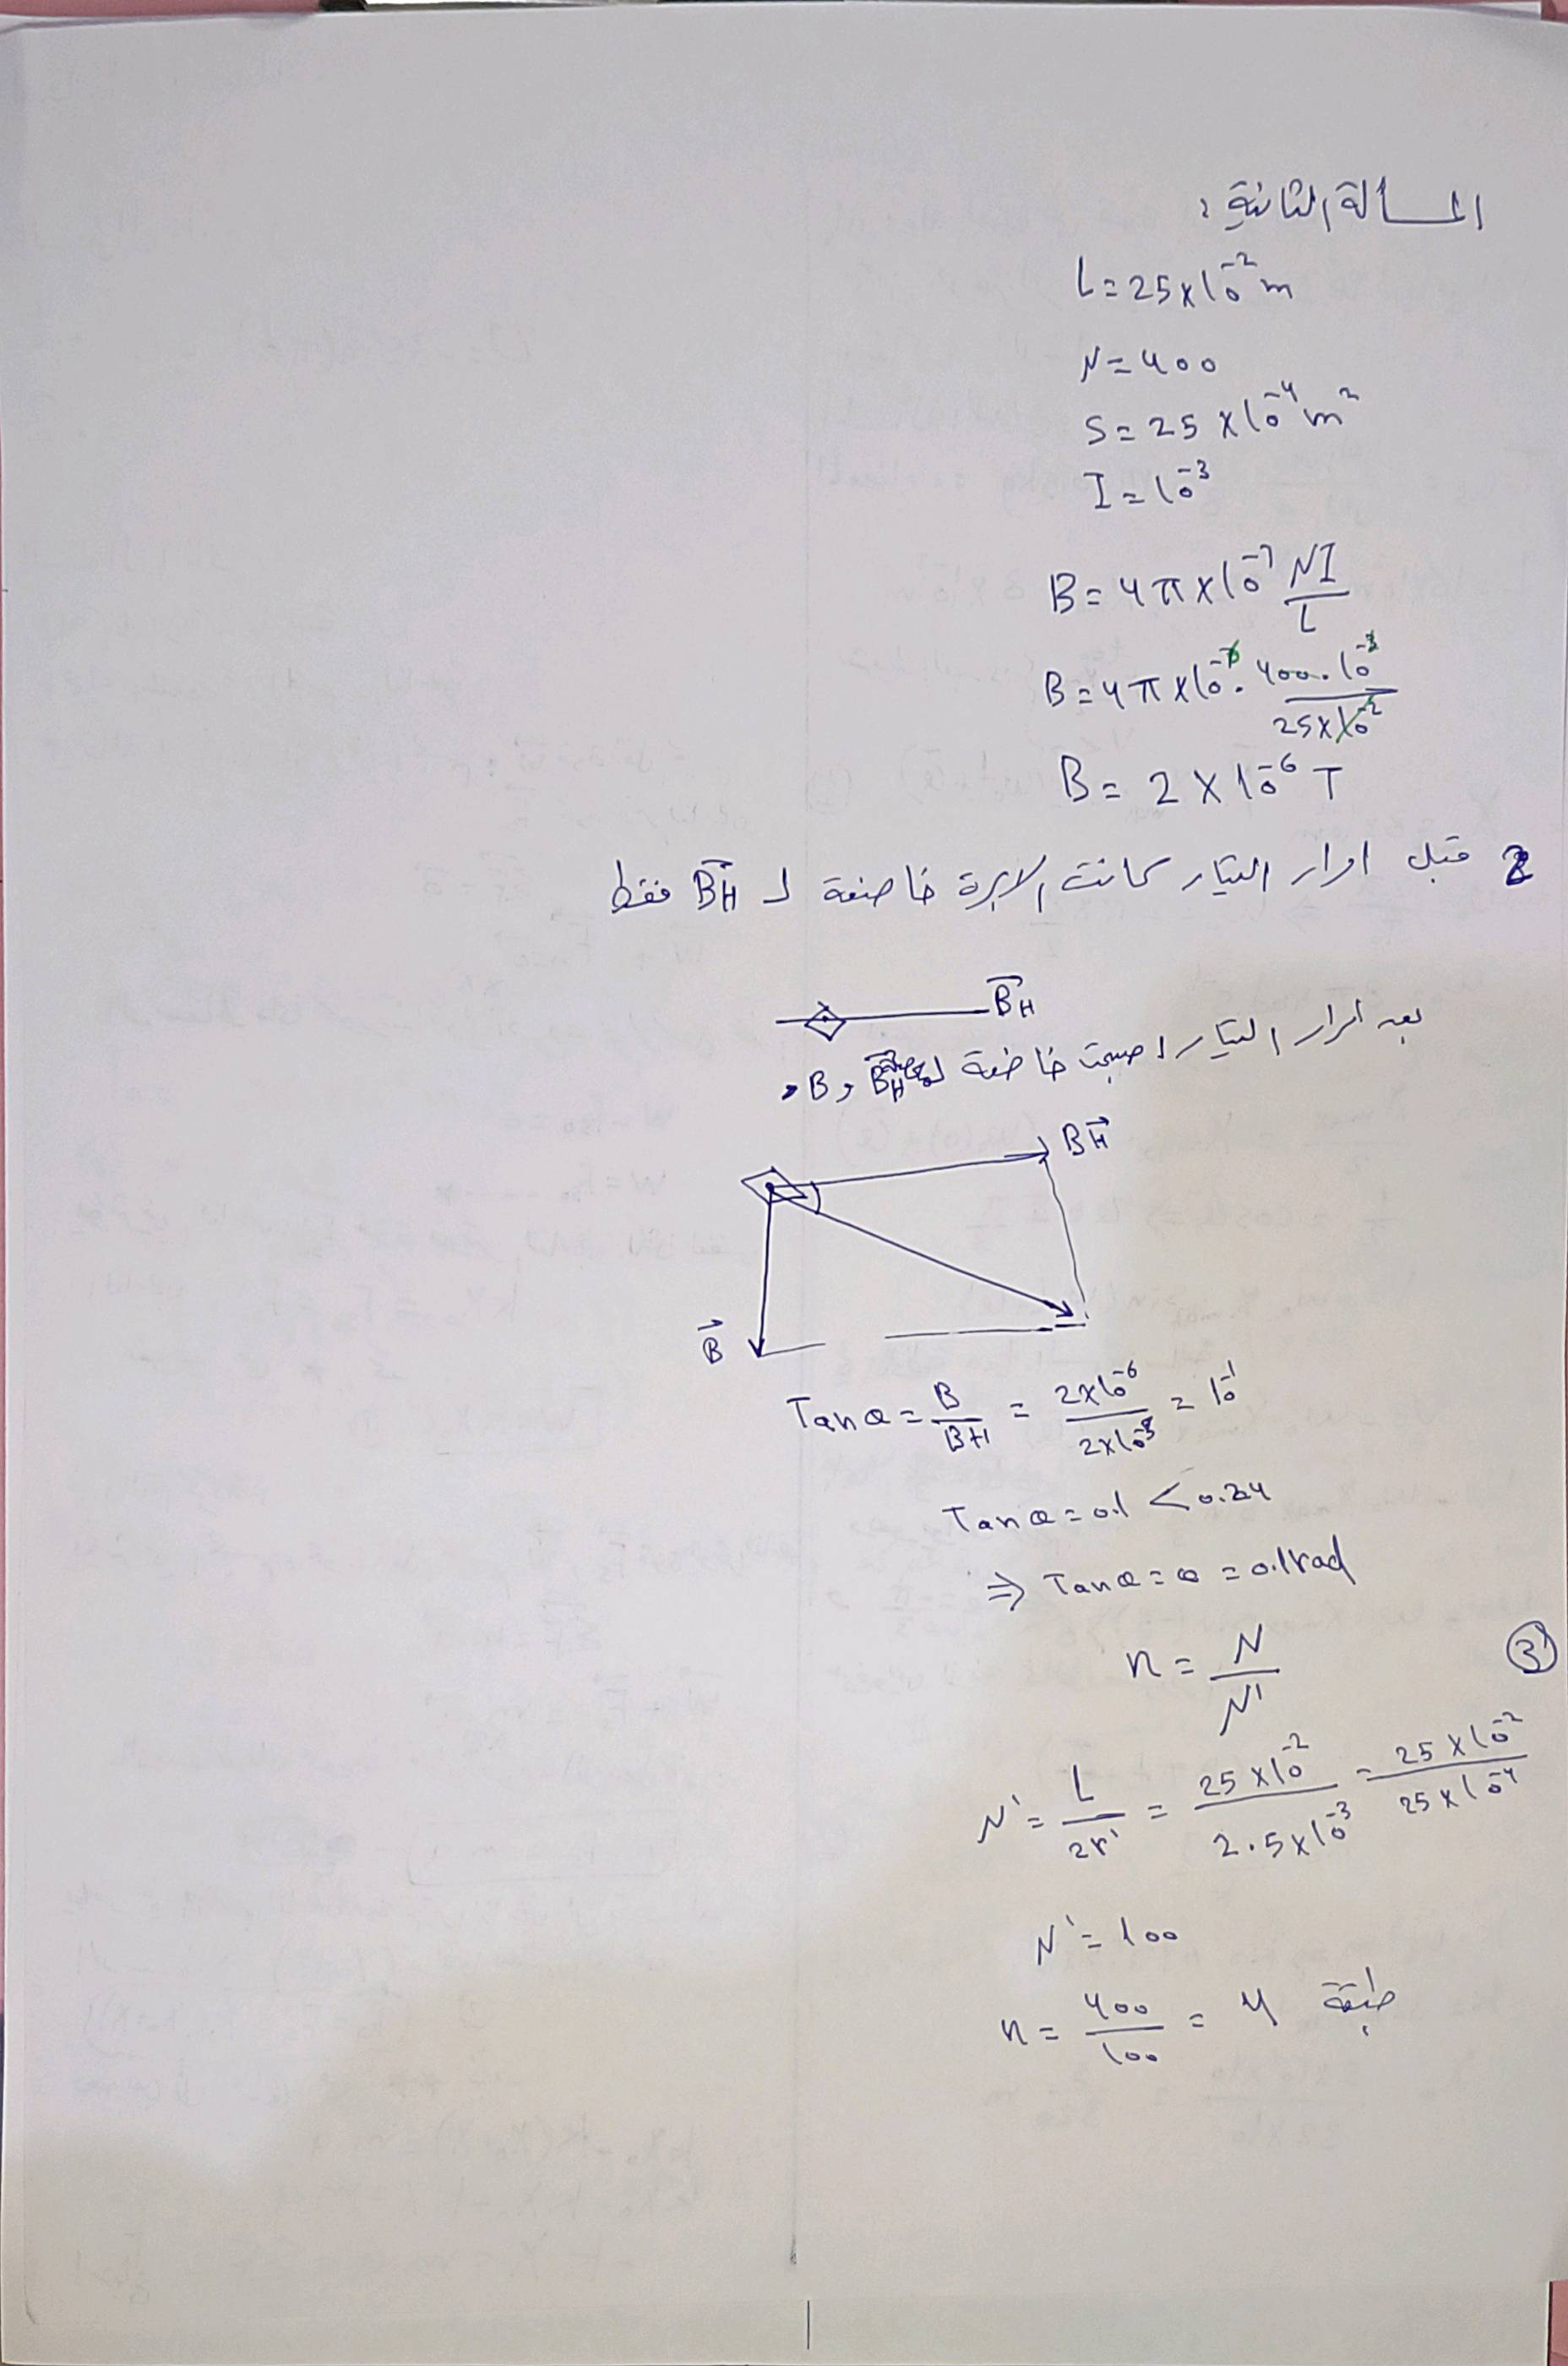 المسألة الثانية:
L = 25 × 10⁻² m
N = 400
S = 25 × 10⁻⁴ m²
I = 10⁻³
B = 4π × 10⁻⁷ NI / L
B = 4π × 10⁻⁷ · 400 · 10⁻³ / 25 × 10⁻²
B = 2 × 10⁻⁶ T
2 قبل امرار التيار كانت الابرة خاضعة لـ B⃗H فقط
B⃗H
بعد امرار التيار اصبحت خاضعة B⃗H و B
B⃗H
B⃗
Tan θ = B / BH = 2 × 10⁻⁶ / 2 × 10⁻⁵ = 10⁻¹
Tan θ = 0.1 < 0.24
⇒ Tan θ = θ = 0.1 rad
③ n = N / N'
N' = L / 2r' = 25 × 10⁻² / 2.5 × 10⁻³ = 25 × 10⁻² / 25 × 10⁻⁴
N' = 100
n = 400 / 100 = 4 طبقة